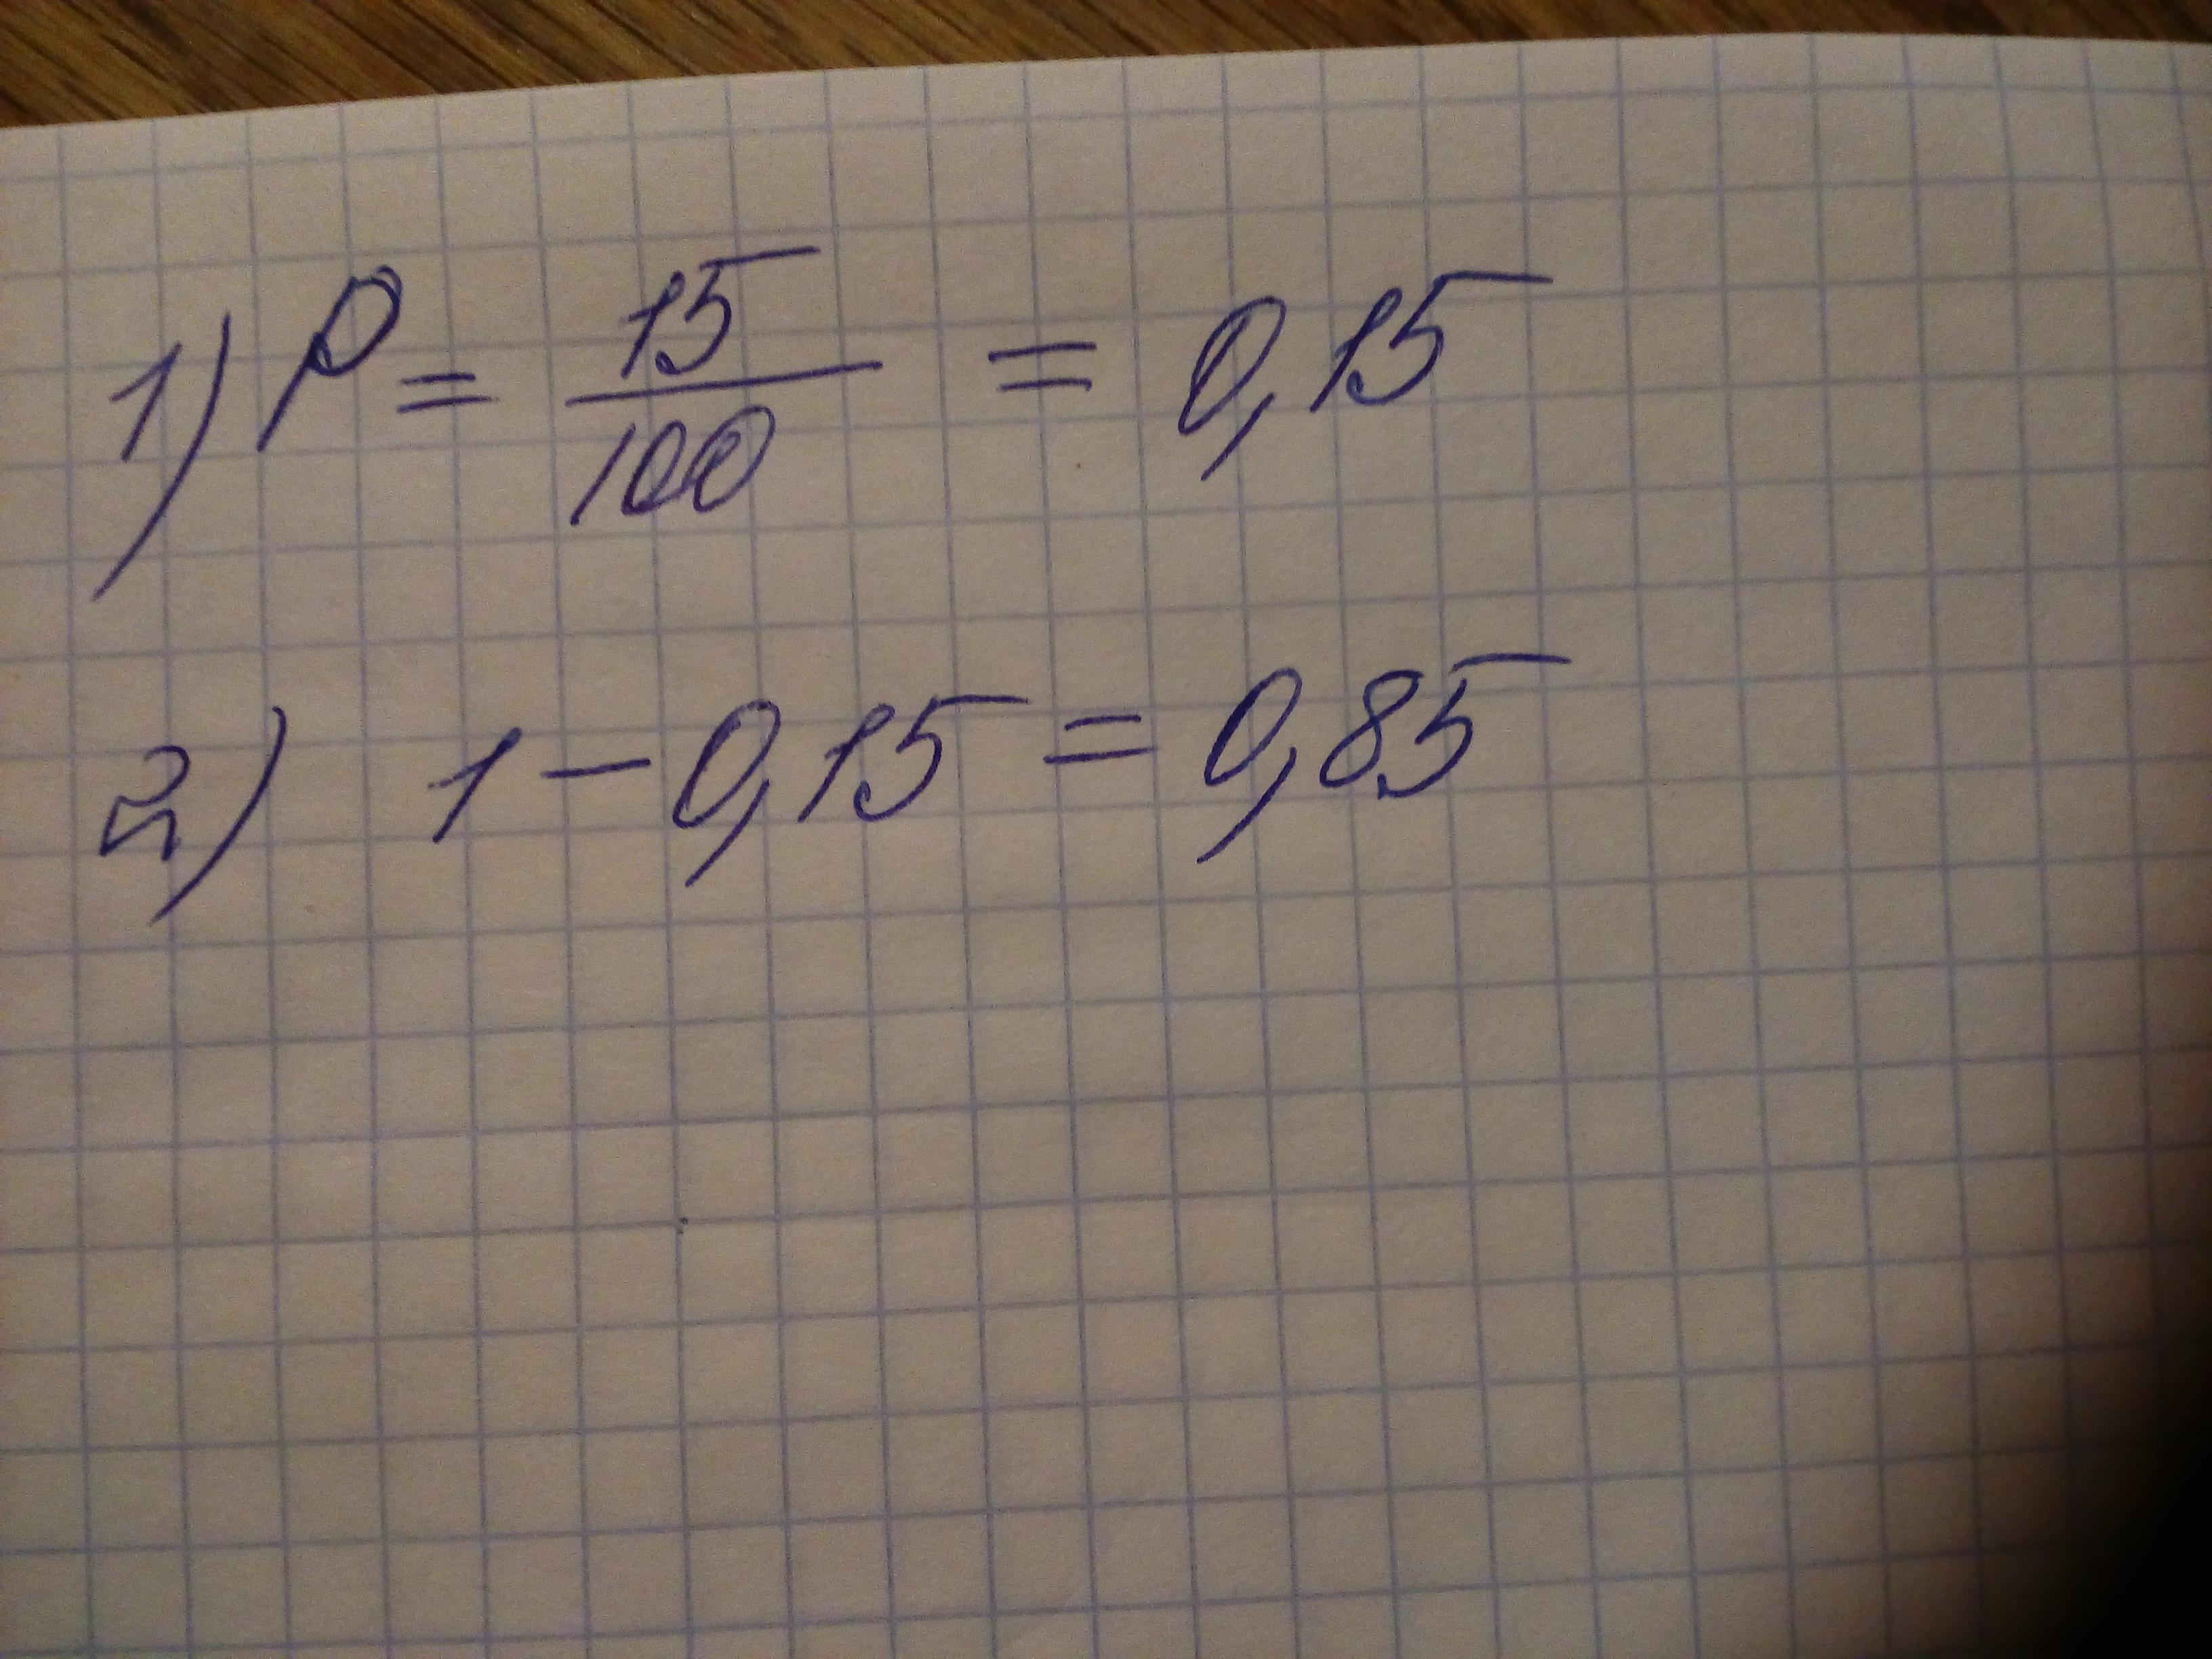 1) P = 15/100 = 0,15
2) 1 - 0,15 = 0,85